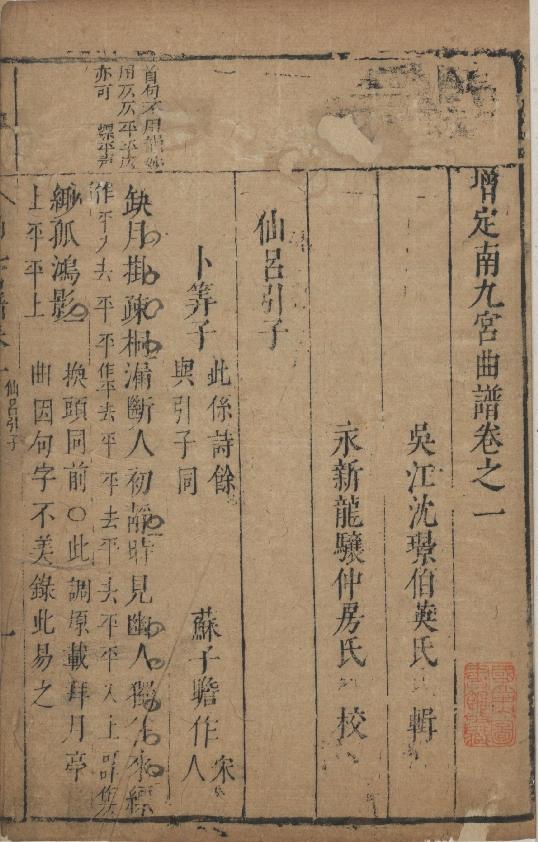 增定南九宮曲譜卷之一
吳江沈璟伯英氏 輯
永新龍驤仲房氏 校
仙呂引子
卜筭子 蘇子瞻作 宋人
此係詩餘
與引子同
缺月掛疎桐漏斷人初靜時見幽人獨往來縹
作平入去平平作平去平平去平
緲孤鴻影
上平平上
換頭同前〇此調原載拜月亭
曲因句字不美錄此易之
首句不用韻
用仄仄平平仄
亦可 縹平聲
仙呂引子
一